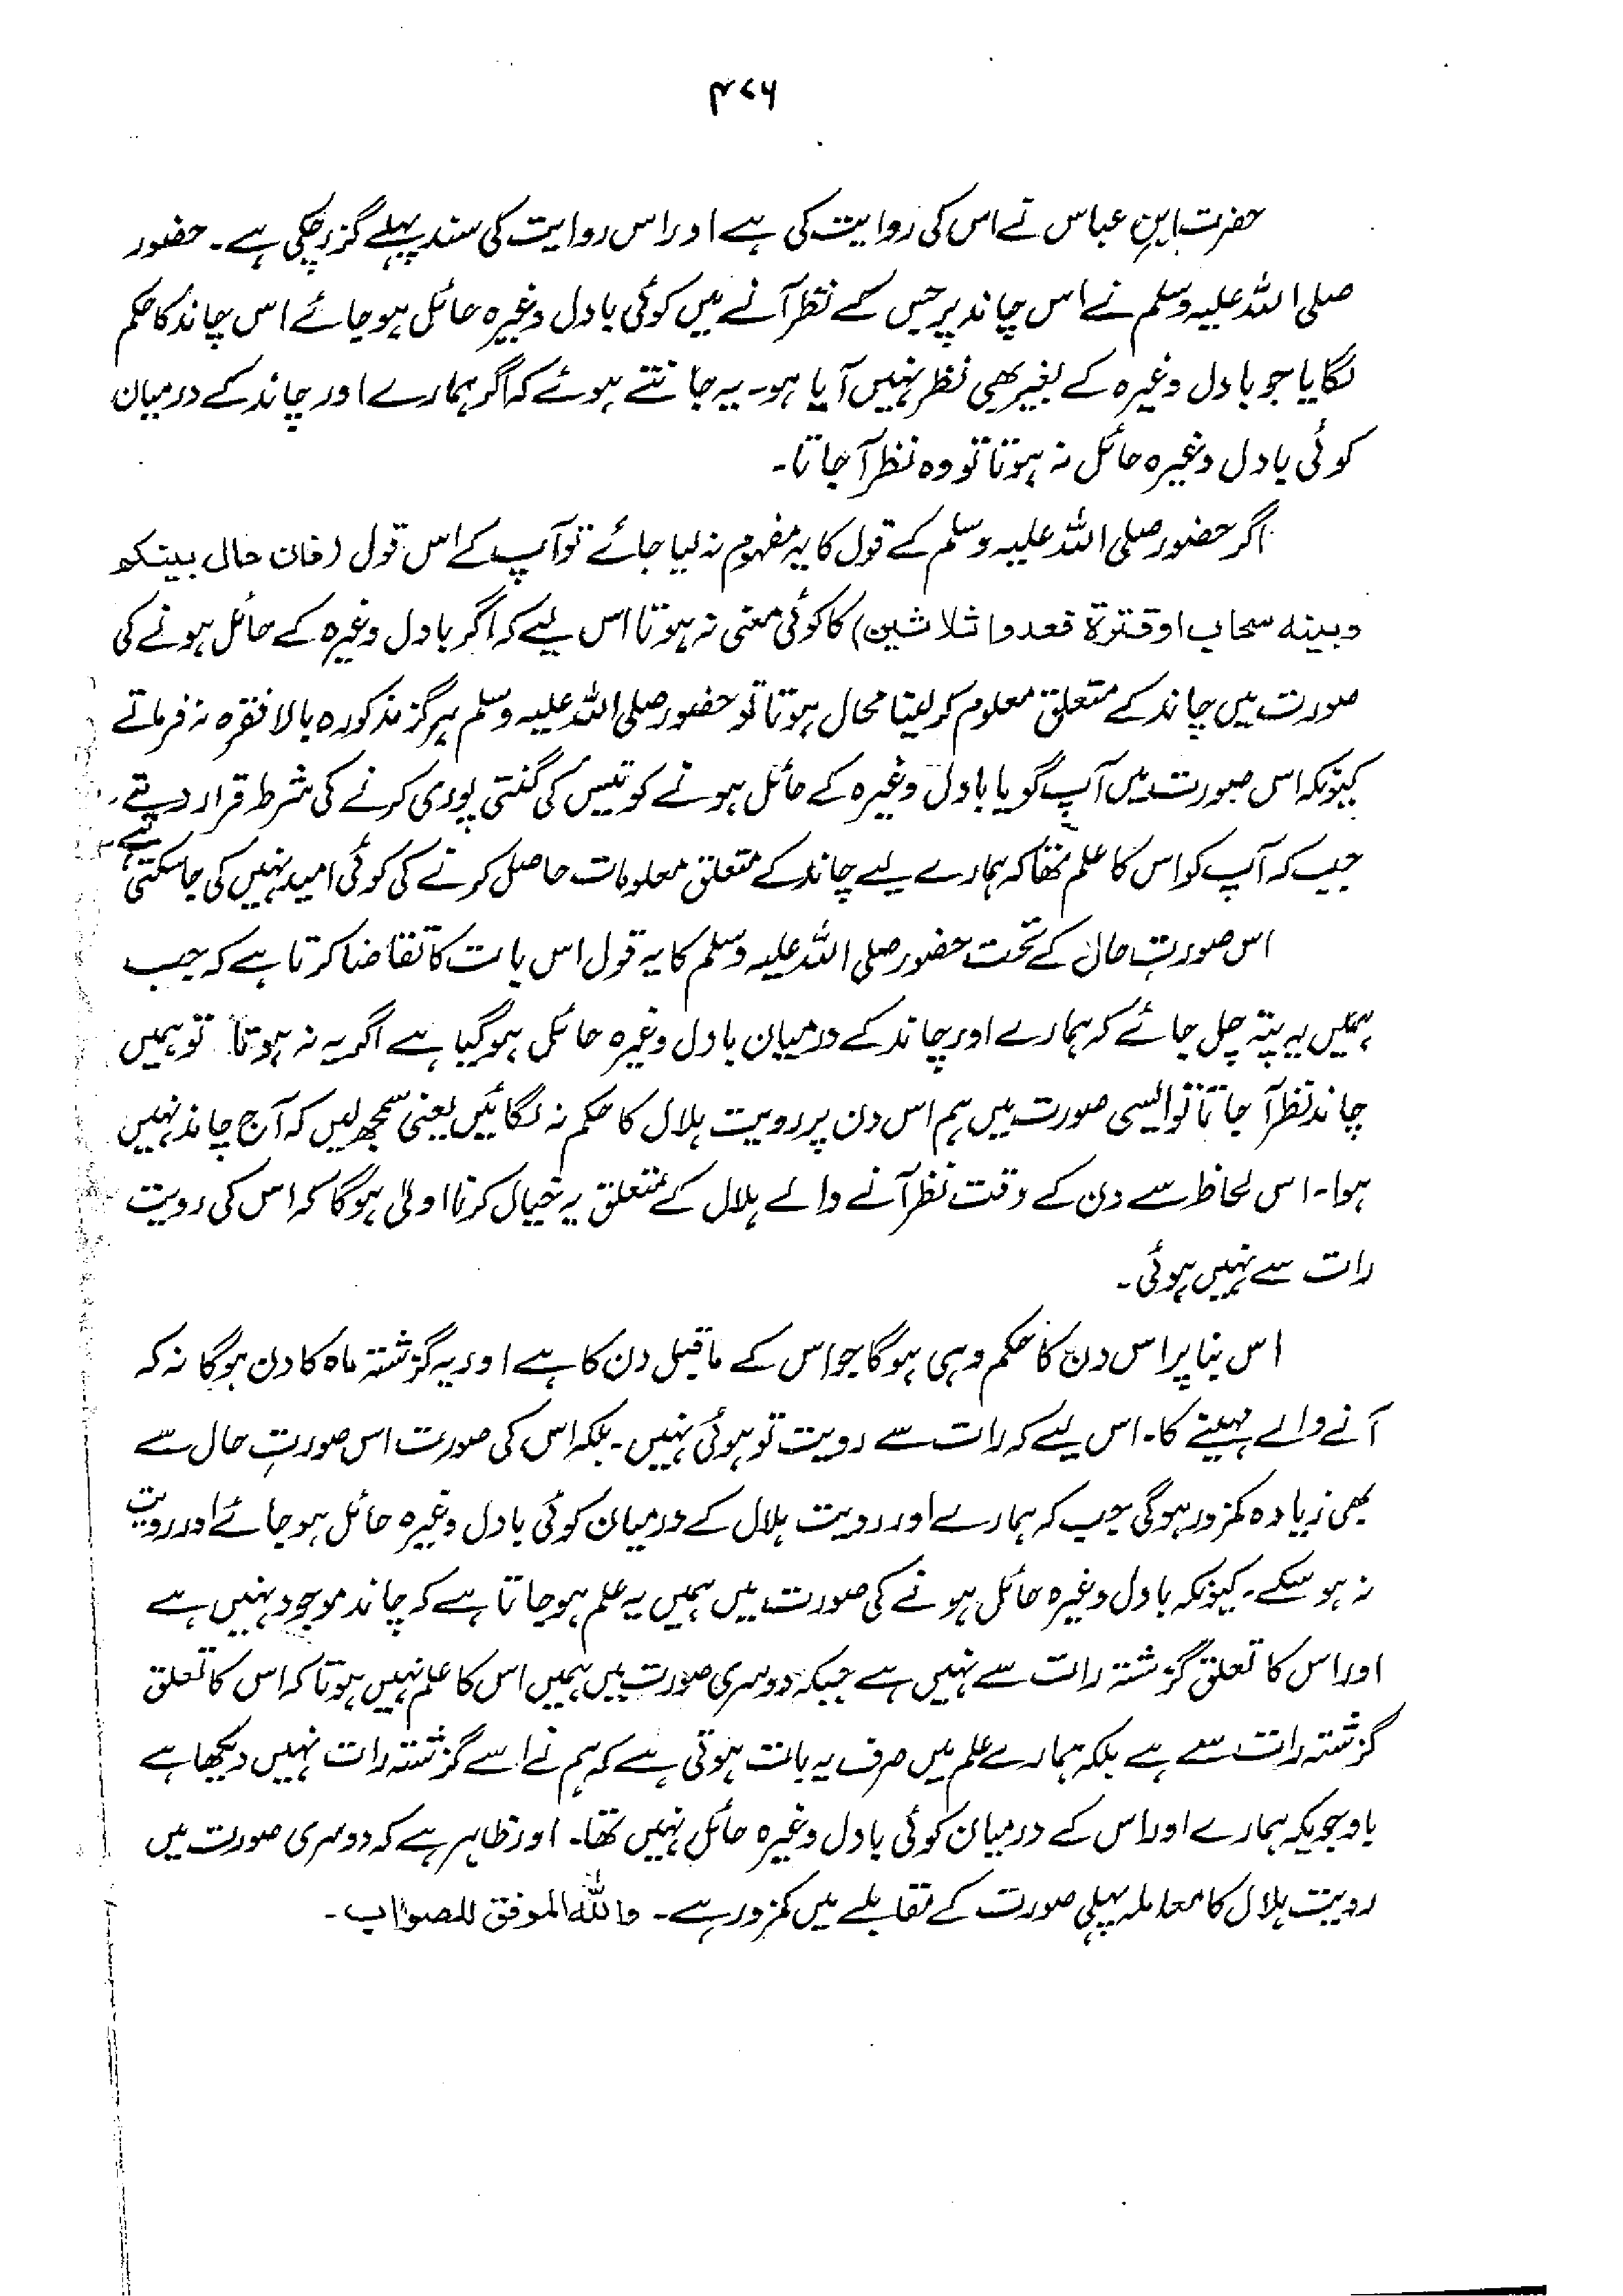 ۴۷۶
حضرت ابنِ عباس نے اس کی روایت کی ہے اور اس روایت کی سند پہلے گزر چکی ہے۔ حضور
صلی اللہ علیہ وسلم نے اس چاند پر جس کے نظر آنے میں کوئی بادل وغیرہ حائل ہو جائے اس چاند کا حکم
لگایا جو بادل وغیرہ کے بغیر بھی نظر نہیں آیا ہو۔ یہ جانتے ہوئے کہ اگر ہمارے اور چاند کے درمیان
کوئی بادل وغیرہ حائل نہ ہوتا تو وہ نظر آجاتا۔
اگر حضور صلی اللہ علیہ وسلم کے قول کا یہ مفہوم نہ لیا جائے تو آپ کے اس قول (فان حال بینکم
وبینہ سحاب او قترۃ فعدوا ثلاثین) کا کوئی معنی نہ ہوتا اس لیے کہ اگر بادل وغیرہ کے حائل ہونے کی
صورت میں چاند کے متعلق معلوم کر لینا محال ہوتا تو حضور صلی اللہ علیہ وسلم ہرگز مذکورہ بالا فقرہ نہ فرماتے
کیونکہ اس صورت میں آپ گویا بادل وغیرہ کے حائل ہونے کو تیس کی گنتی پوری کرنے کی شرط قرار دیتے۔
جب کہ آپ کو اس کا علم تھا کہ ہمارے لیے چاند کے متعلق معلومات حاصل کرنے کی کوئی امید نہیں کی جاسکتی ہے
اس صورتِ حال کے تحت حضور صلی اللہ علیہ وسلم کا یہ قول اس بات کا تقاضا کرتا ہے کہ جب
ہمیں یہ پتہ چل جائے کہ ہمارے اور چاند کے درمیان بادل وغیرہ حائل ہو گیا ہے اگر یہ نہ ہوتا تو ہمیں
چاند نظر آجاتا تو ایسی صورت میں ہم اس دن پر رویت ہلال کا حکم نہ لگائیں یعنی سمجھ لیں کہ آج چاند نہیں
ہوا۔ اس لحاظ سے دن کے وقت نظر آنے والے ہلال کے متعلق یہ خیال کرنا اولیٰ ہوگا کہ اس کی رویت
رات سے نہیں ہوئی۔
اس بنا پر اس دن کا حکم وہی ہوگا جو اس کے ماقبل دن کا ہے اور یہ گزشتہ ماہ کا دن ہوگا نہ کہ
آنے والے مہینے کا۔ اس لیے کہ رات سے رویت تو ہوئی نہیں۔ بلکہ اس کی صورت اس صورتِ حال سے
بھی زیادہ کمزور ہوگی جب کہ ہمارے اور رویت ہلال کے درمیان کوئی بادل وغیرہ حائل ہو جائے اور رویت
نہ ہو سکے۔ کیونکہ بادل وغیرہ حائل ہونے کی صورت میں ہمیں یہ علم ہو جاتا ہے کہ چاند موجود نہیں ہے
اور اس کا تعلق گزشتہ رات سے نہیں ہے جبکہ دوسری صورت میں ہمیں اس کا علم نہیں ہوتا کہ اس کا تعلق
گزشتہ رات سے ہے بلکہ ہمارے علم میں صرف یہ بات ہوتی ہے کہ ہم نے اسے گزشتہ رات نہیں دیکھا ہے
باوجودیکہ ہمارے اور اس کے درمیان کوئی بادل وغیرہ حائل نہیں تھا۔ اور ظاہر ہے کہ دوسری صورت میں
رویت ہلال کا معاملہ پہلی صورت کے مقابلے میں کمزور ہے۔ واللہ الموفق للصواب۔